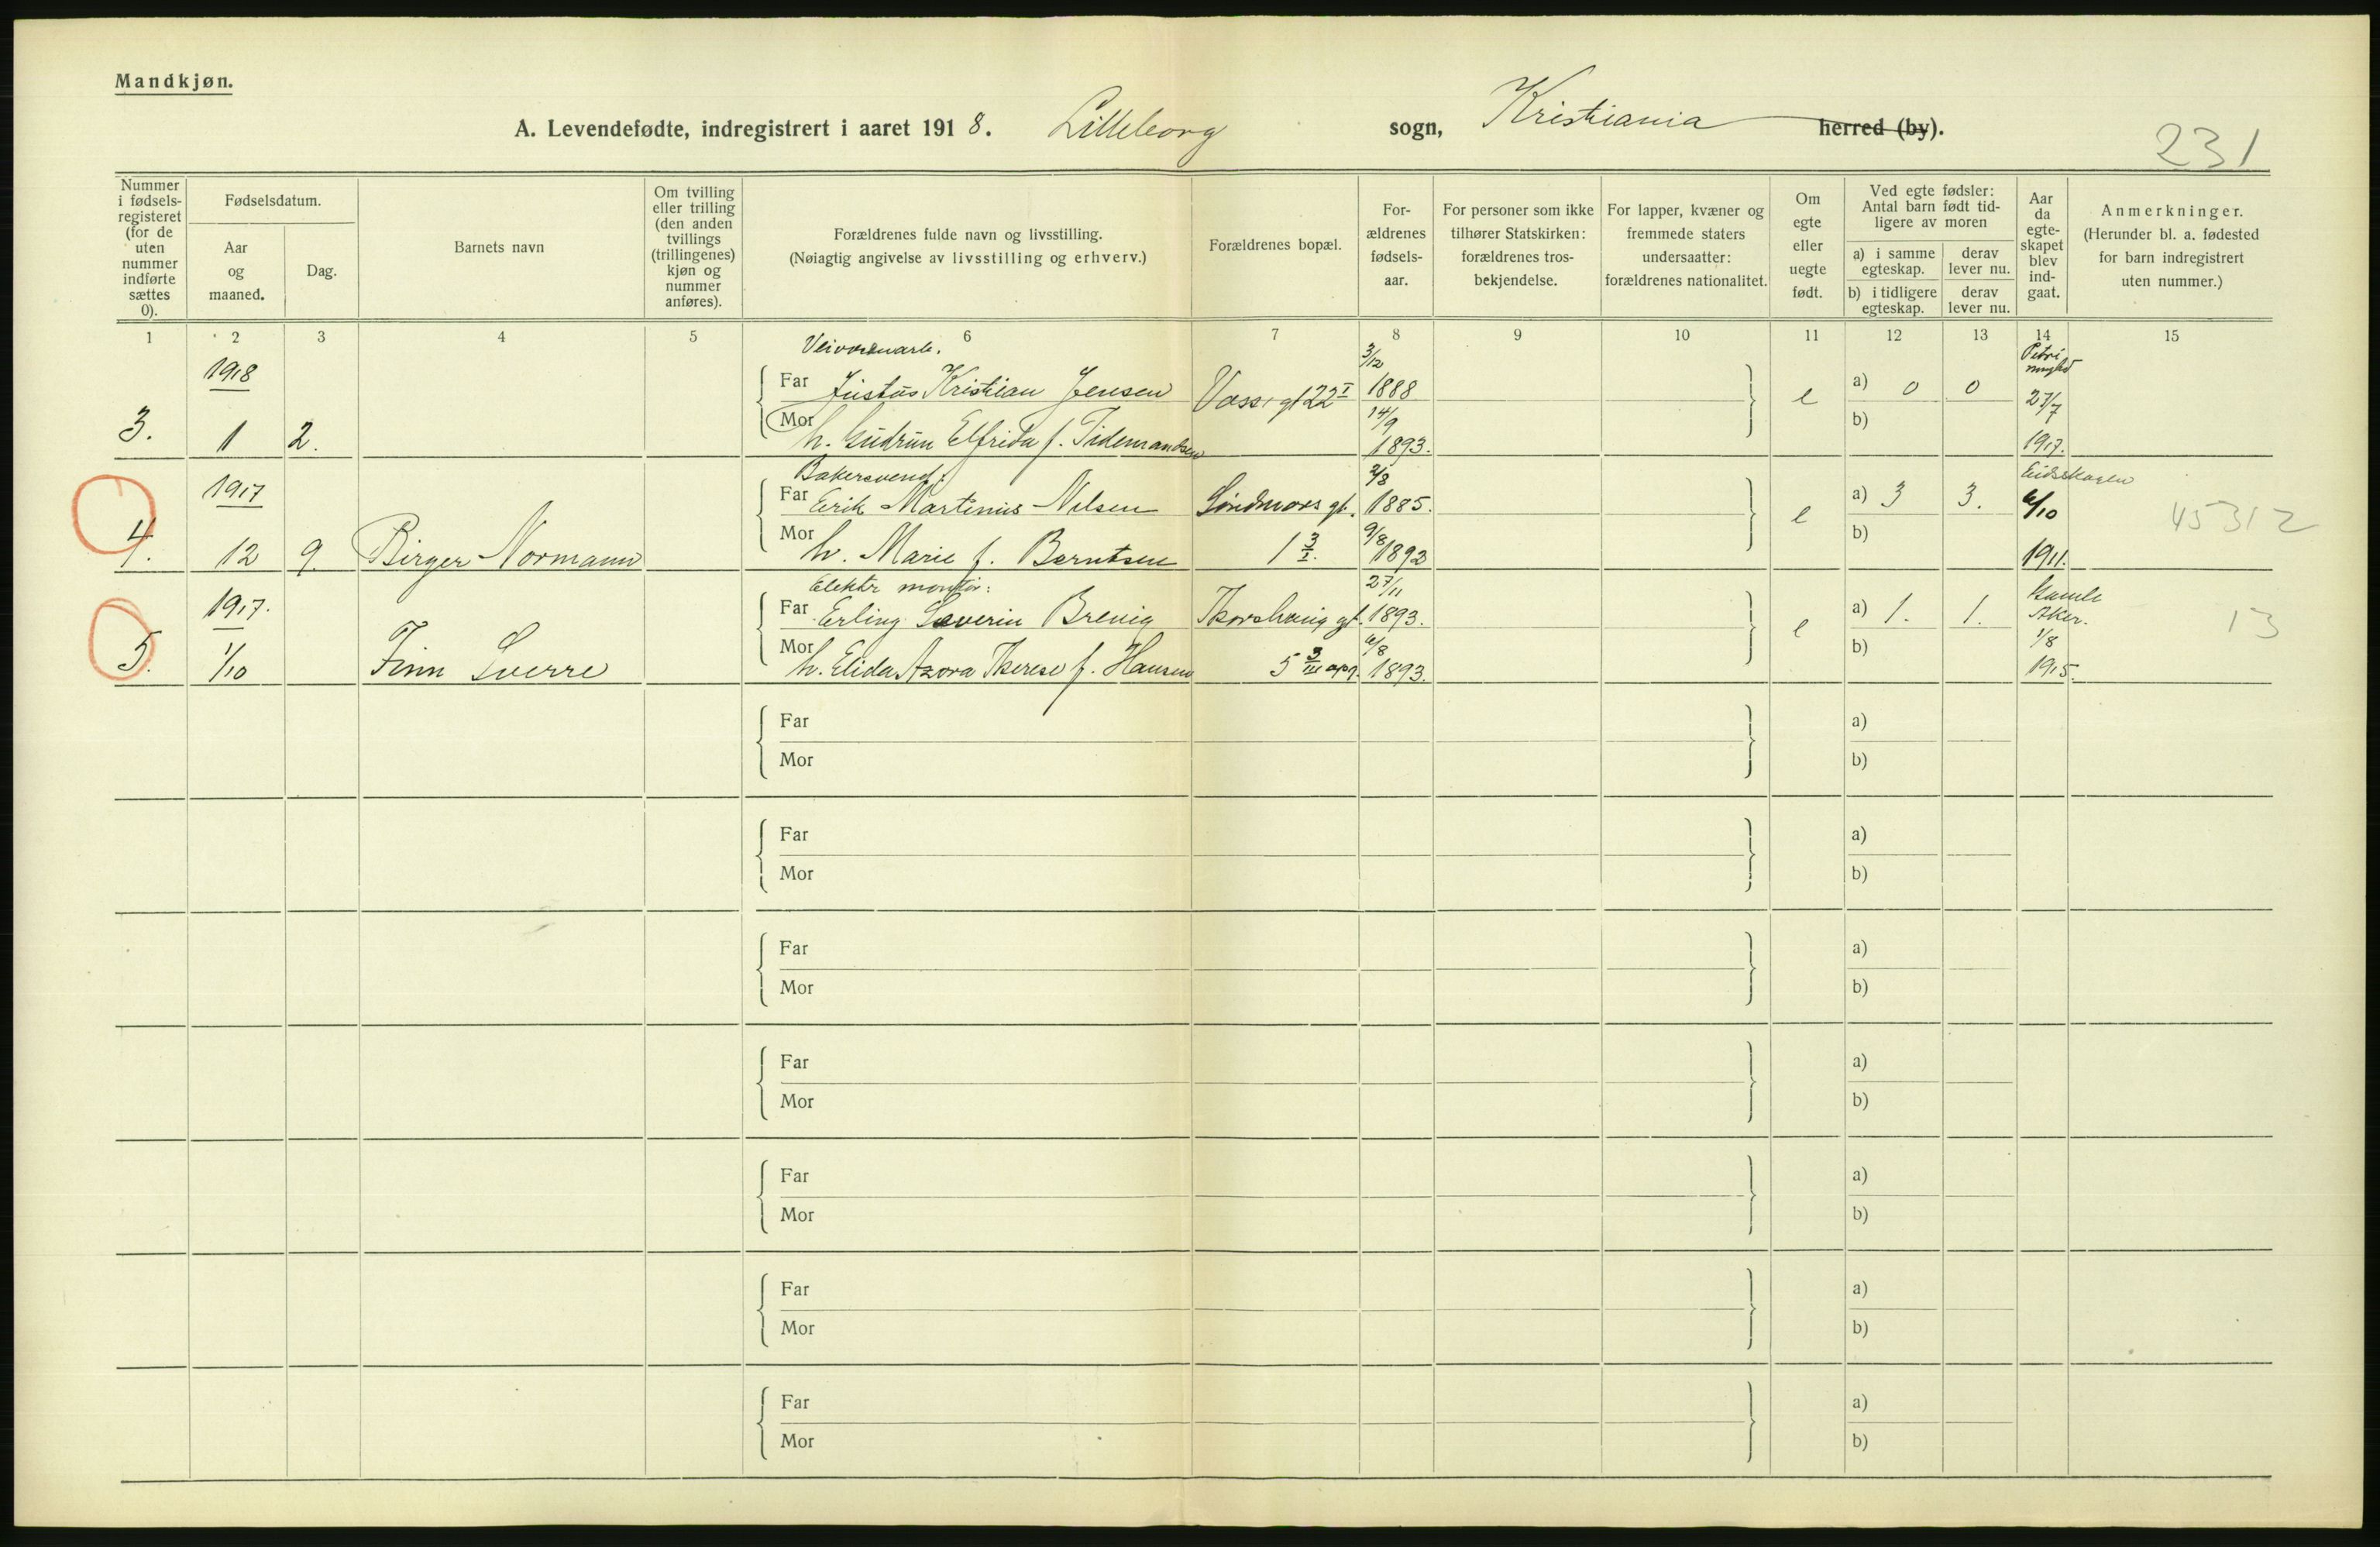 Mandkjøn.
A. Levendefødte, indregistrert i aaret 1918. Lilleborg sogn, Kristiania herred (by).
231
Nummer i fødsels-registeret (for de uten nummer indførte sættes 0).
Fødselsdatum.
Aar og maaned.
Dag.
Barnets navn
Om tvilling eller trilling (den anden tvillings (trillingenes) kjøn og nummer anføres).
Forældrenes fulde navn og livsstilling.
(Nøiagtig angivelse av livsstilling og erhverv.)
Forældrenes bopæl.
For-ældrenes fødsels-aar.
For personer som ikke tilhører Statskirken: forældrenes tros-bekjendelse.
For lapper, kvæner og fremmede staters undersaatter: forældrenes nationalitet.
Om egte eller uegte født.
Ved egte fødsler: Antal barn født tid-ligere av moren
a) i samme egteskap.
derav lever nu.
b) i tidligere egteskap.
derav lever nu.
Aar da egte-skapet blev ind-gaat.
Anmerkninger.
(Herunder bl. a. fødested for barn indregistrert uten nummer.)
1 2 3 4 5 6 7 8 9 10 11 12 13 14 15
3. 1918 1 2.
Far Justus Kristian Jensen
Mor h. Gudrun Elfrida f. Tidemandsen
22 I
3/12 1888
14/9 1893.
e
a) 0 0
b)
Petri
27/7 1917.
4. 1917 12 9. Birger Normann
Bakersvend.
Far Erik Martinius Nilsen
Mor h. Marie f. Berntsen
Søndmørs gt. 1 3/I.
2/8 1885.
9/8 1892
e
a) 3 3.
b)
Eidskogen
6/10 1911.
45312
5. 1917. 1/10 Finn Sverre
Elektr montør:
Far Erling Severin Brevig
Mor h. Elida Azora Therese f. Hansen
Thorshaug gt. 5 3/III opg.
27/11 1893.
6/8 1893.
e
a) 1. 1.
b)
Gamle Aker.
1/8 1915.
13
Far a)
Mor b)
Far a)
Mor b)
Far a)
Mor b)
Far a)
Mor b)
Far a)
Mor b)
Far a)
Mor b)
Far a)
Mor b)